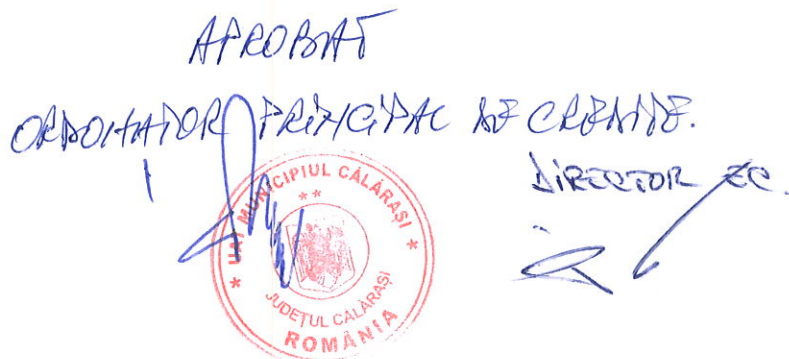 APROBAT
ORDONATOR PRINCIPAL DE CREDITE.
DIRECTOR EC.
* UAT MUNICIPIUL CĂLĂRAȘI *
* *
JUDEȚUL CĂLĂRAȘI
ROMÂNIA